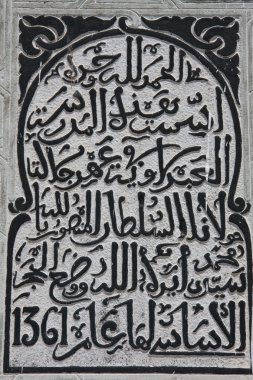 الحمد لله حق حمده
أسست هذه المدرسة
البحراوية في عهد جلالة
مولانا السلطان المنصور بالله
سيدي محمد أيده الله ووضع الحجر
الأساسي لها في عام 1361